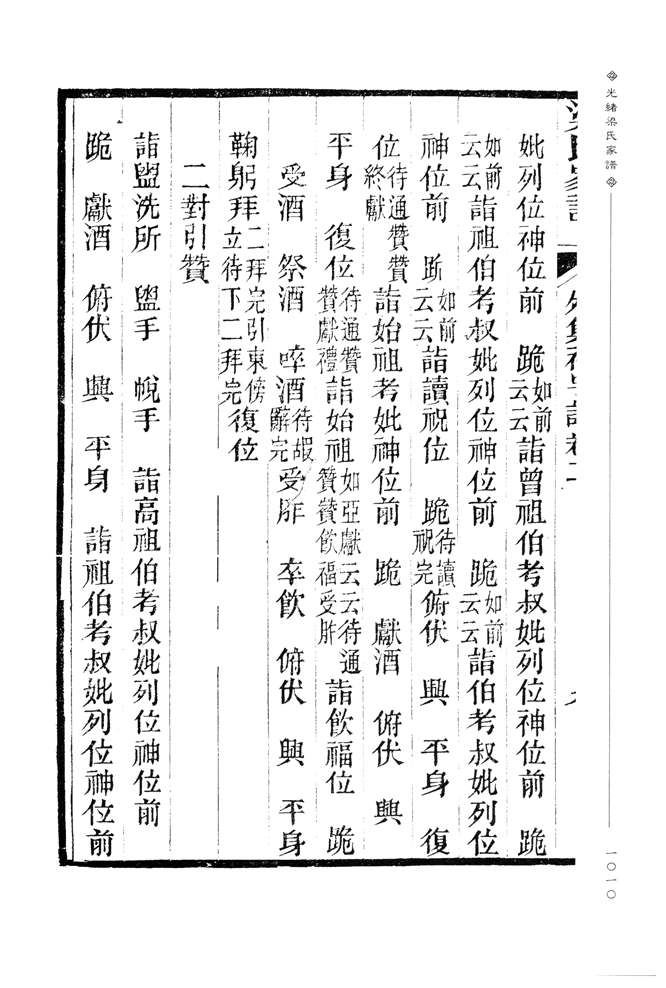 光緒梁氏家譜
一〇一〇
妣列位神位前 跪如前云云詣曾祖伯考叔妣列位神位前 跪
如前云云詣祖伯考叔妣列位神位前 跪如前云云詣伯考叔妣列位
神位前 跪如前云云詣讀祝位 跪待讀祝完俯伏 興 平身 復
位待通贊贊終獻詣始祖考妣神位前 跪 獻酒 俯伏 興
平身 復位待通贊贊獻禮詣始祖如亞獻云云待通贊贊飲福受胙詣飲福位 跪
受酒 祭酒 啐酒待嘏辭完受胙 卒飲 俯伏 興 平身
鞠躬拜二拜完引東傍立待下二拜完復位
二對引贊
詣盥洗所 盥手 帨手 詣高祖伯考叔妣列位神位前
跪 獻酒 俯伏 興 平身 詣祖伯考叔妣列位神位前